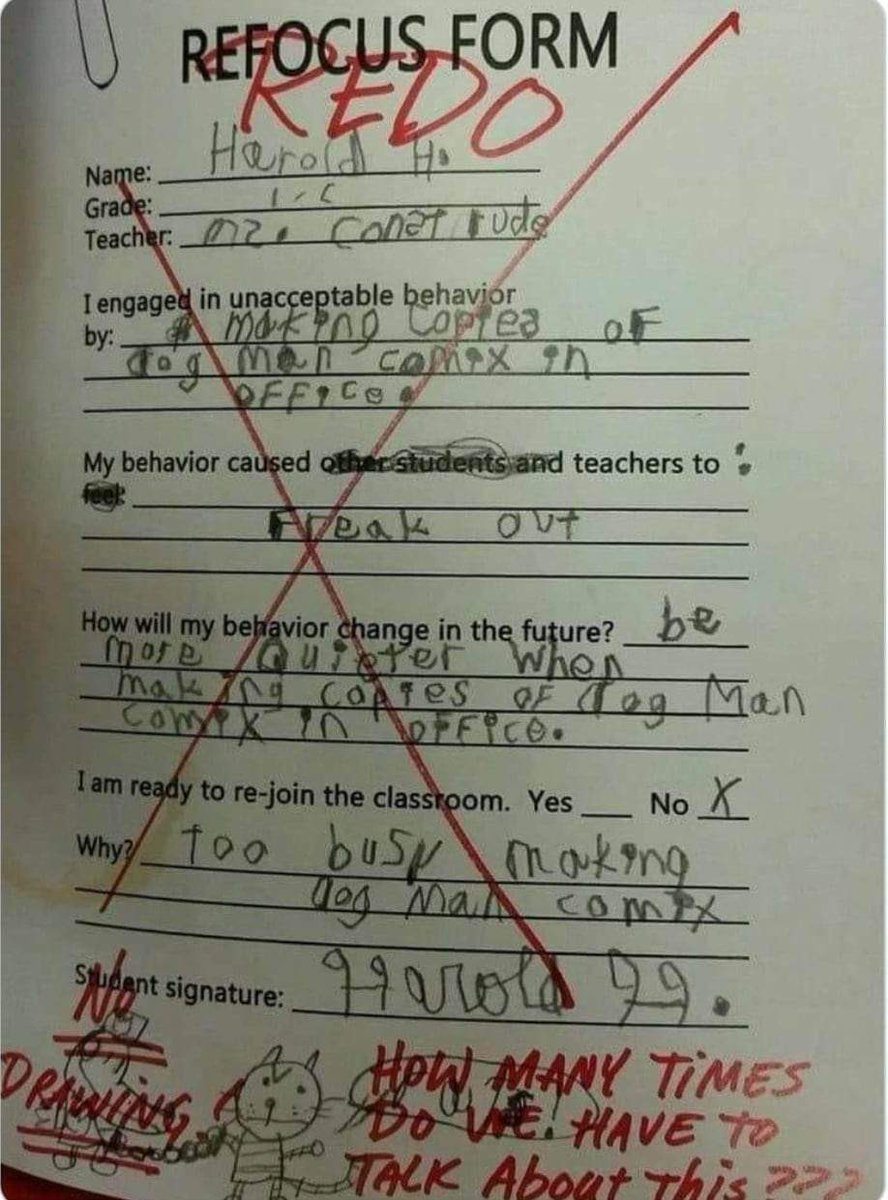 REFOCUS FORM
REDO
Name: Harold H.
Grade: 1-C
Teacher: mz. Conat rude
I engaged in unacceptable behavior
by: making copies of
dog man comix in
office.
My behavior caused other students and teachers to :
feel:
Freak out
How will my behavior change in the future? be
more Quieter when
making copies of dog Man
comix in office.
I am ready to re-join the classroom. Yes ___ No X
Why? Too busy making
dog Man comix
Student signature: Harold H.
No
DRAWING!
HOW MANY TIMES
DO WE HAVE TO
TALK About This ???